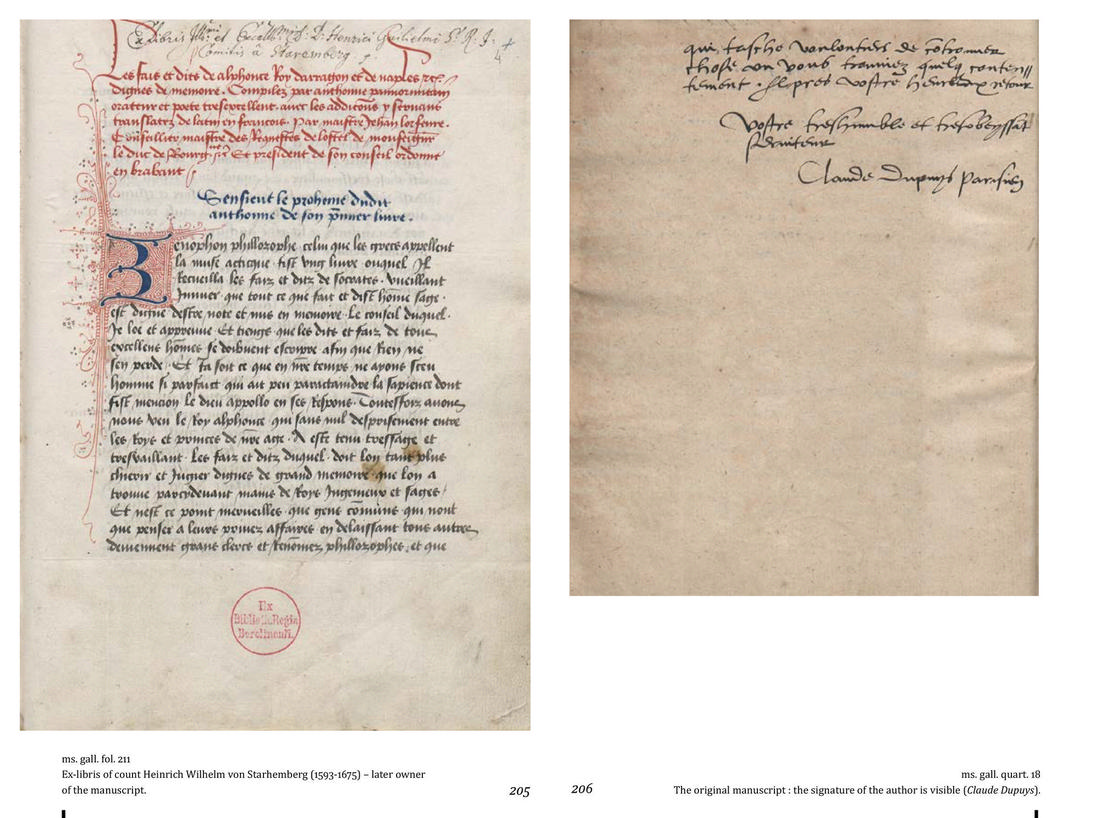 Ex Libris Ill.mi et Excell.mi D: D: Henrici Guilielmi S. R. I.
Comitis à Staremberg
4
Les fais et dits de alphonce Roy darragon et de naples
dignes de memoire. Compilez par anthoine panormitain
orateur et poete tresexcellent. auec les addicions y seruans
translatez de latin en francois. Par maistre Jehan lorfeure.
Conseillier maistre des Requestes de lostel de monseigneur
le duc de Bourgne Et president de son conseil ordonne
en brabant
Sensieut le proheme dudit
anthoine de son pmier liure.
Zenophon philozophe celui que les grecs appellent
la muse acticque fist vng liure ouquel Il
Recueilla les faiz et ditz de socrates. Vueillant
que tout ce que fait et dist home sage.
est digne destre note et mis en memoire. Le conseil duquel.
Je loe et appreuue. Et tiengz que les dits et faiz de tous
excellens homes se doibuent escripre afin que Rien ne
sen perde. Et Ja soit ce que en nre temps ne ayons sceu
homme si parfaict qui ait peu paractaindre la sapience dont
fist mencion le dieu appollo en ses Respons. Toutesfoiz auons
nous veu le Roy alphonce qui sans nul desprisement entre
les Roys et princes de nre age. A este tenu tressage et
tresvaillant. Les faiz et ditz duquel. doit lon tant plus
chierir et Jugier dignes de grand memoire que lon a
trouue parcydeuant mains de Roys Ingenieux et sages
Et nest ce point merueilles que gens comuns qui nont
que penser a leurs priuez affaires en delaissant tous autres
deuiennent grans clercs et Renomez philozophes, et que
Ex
Biblioth.Regia
Berolinensi.
ms. gall. fol. 211
Ex-libris of count Heinrich Wilhelm von Starhemberg (1593-1675) – later owner
of the manuscript.
205
qui tasche voulontiers de
chose ou vous trouuiez quelq conten//
tement. Ilpres vostre heureux retour.
Vostre treshumble et tresobeyssāt
seruiteur
Claude Dupuys Parisien
206
ms. gall. quart. 18
The original manuscript : the signature of the author is visible (Claude Dupuys).